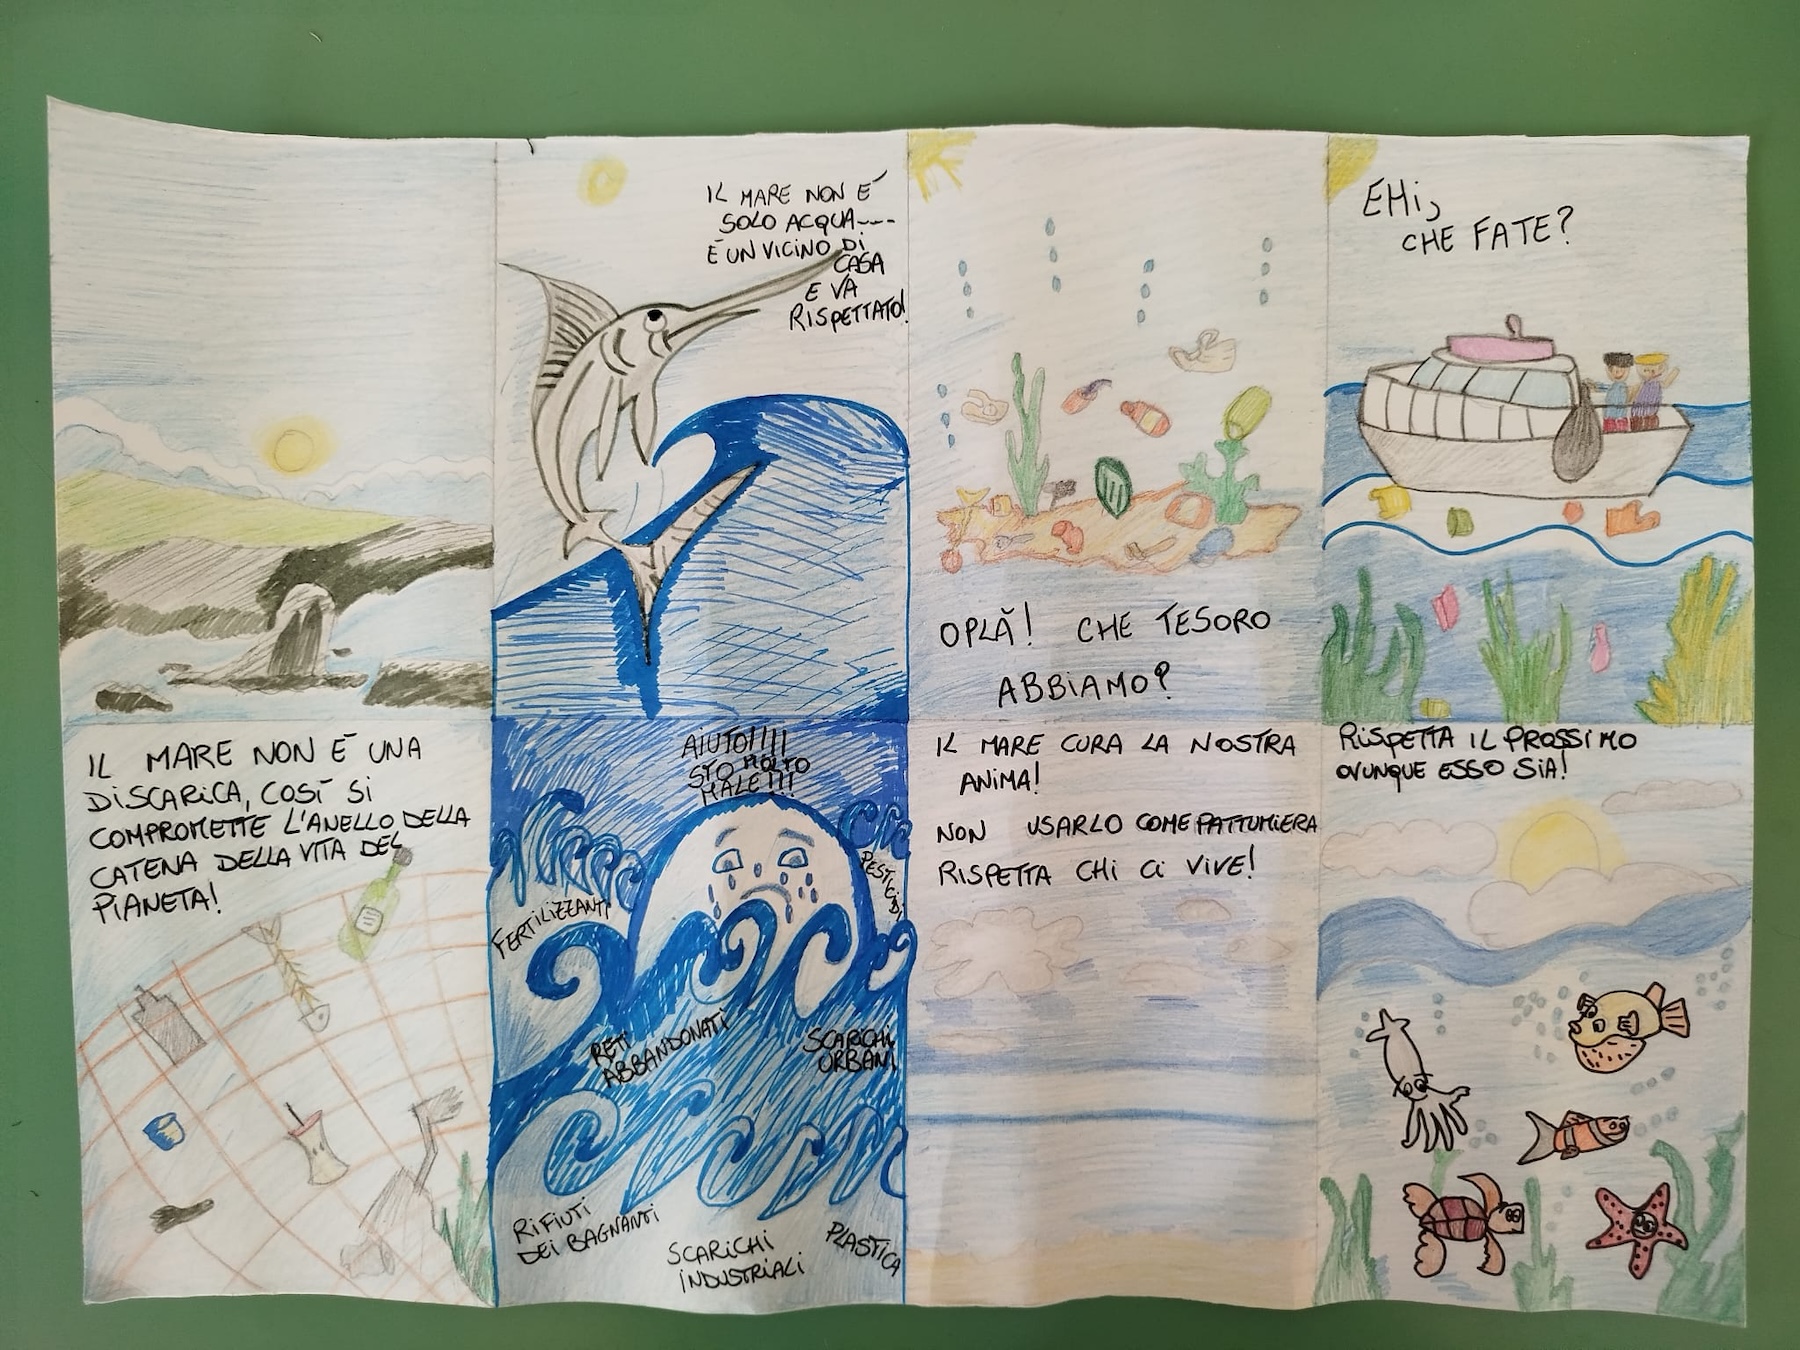 IL MARE NON É
SOLO ACQUA----
É UN VICINO DI
CASA
E VÀ
RISPETTATO!
OPLÀ! CHE TESORO
ABBIAMO?
EHi,
CHE FATE?
IL MARE NON É UNA
DISCARICA, COSÍ SI
COMPROMETTE L'ANELLO DELLA
CATENA DELLA VITA DEL
PIANETA!
AIUTO!!!!
STO MOLTO
MALE!!!
PESTICIDI
FERTILIZZANTI
RETI
ABBANDONATI
SCARICHI
URBANI
RIFIUTI
DEI BAGNANTI
SCARICHI
INDUSTRIALI
PLASTICA
IL MARE CURA LA NOSTRA
ANIMA!
NON USARLO COME PATTUMIERA
RISPETTA CHI CI VIVE!
RISPETTA IL PROSSIMO
OVUNQUE ESSO SIA!